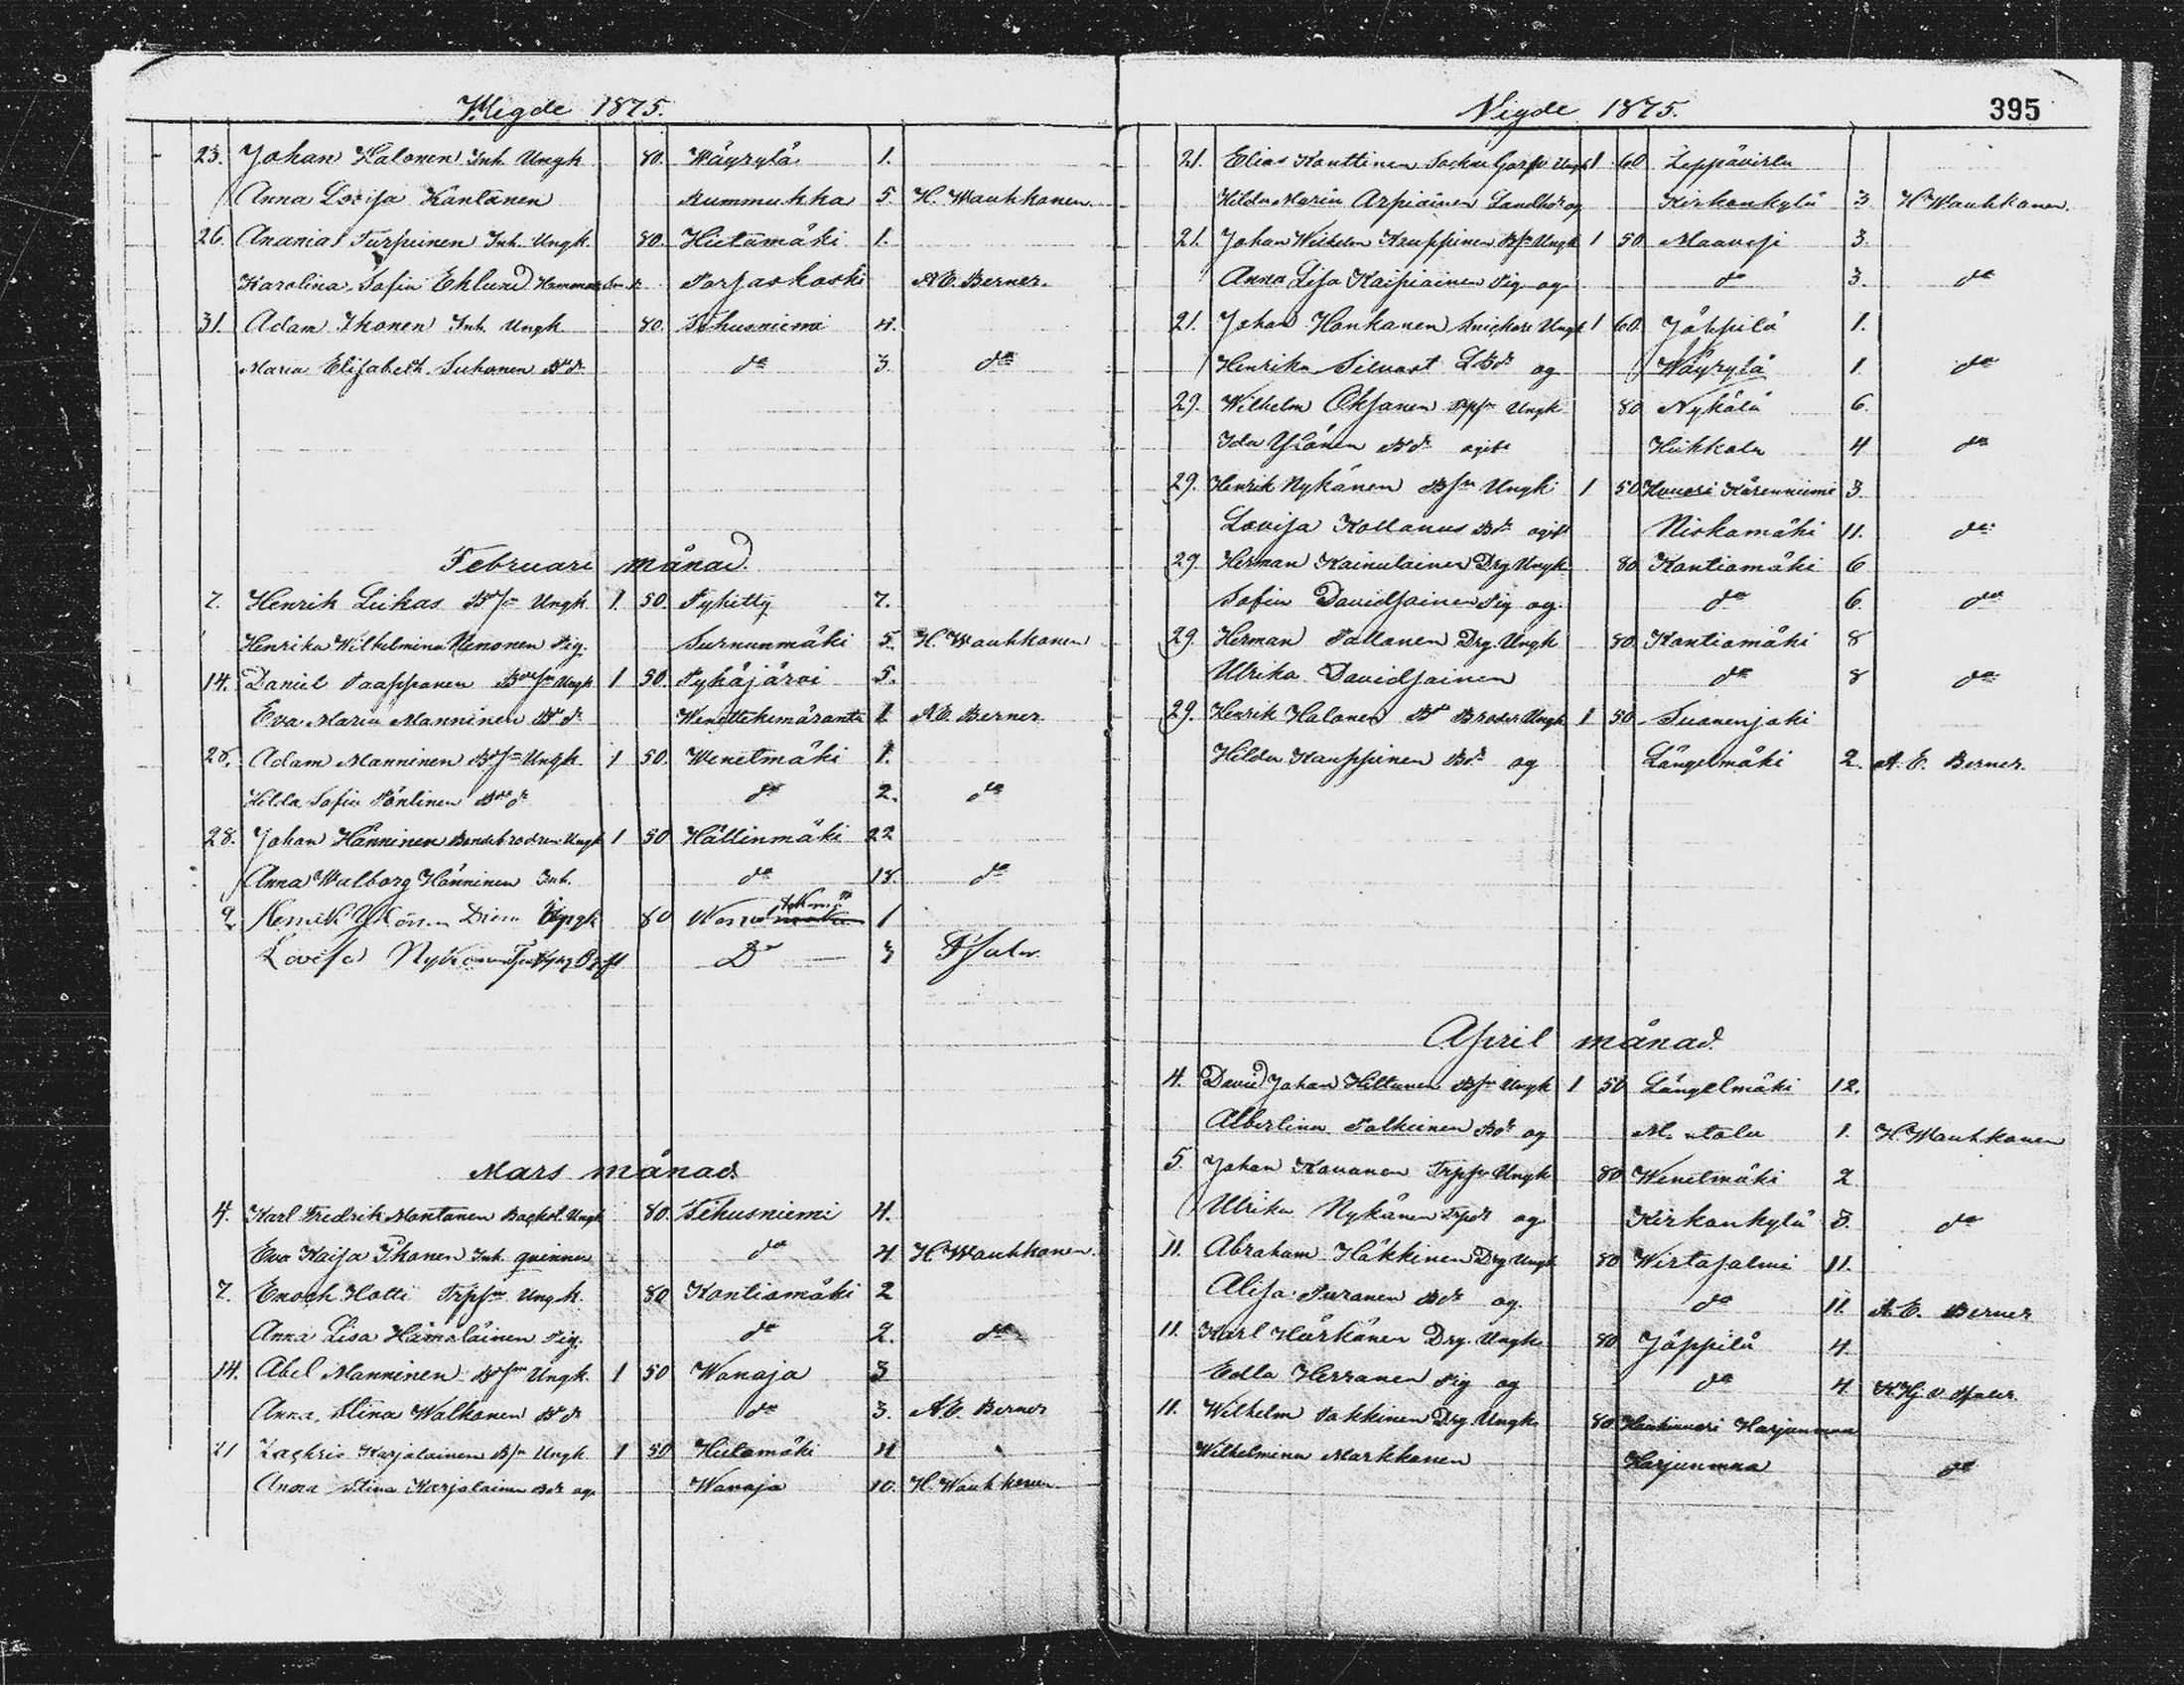 Wigde 1875.
23. Johan Halonen Inh. Ungk 80. Wäyrylä 1.
Anna Lovisa Kantanen Kummukka 5 H. Wauhkonen.
26. Ananias Turpeinen Inh. Ungk. 80. Hietämäki 1.
Karolina Sofia Eklund Sorsakoski A E. Berner.
31. Adam Ihonen Inh. Ungk 80. Tihusniemi 4.
Maria Elisabeth Suhonen Bd. do 3. do
Februari månad.
7. Henrik Liikas Bdsn Ungk. 1. 50. Pyhitty 7.
Henrika Wilhelmina Venonen Pig. Surnunmäki 5. H. Wauhkonen
14. Daniel Paappanen Bdesn Ungk 1 50. Pyhäjärvi 5.
Eva Maria Manninen Bd. 1. A E. Berner.
28. Adam Manninen Bdsn Ungk. 1 50. Wenetmäki 1.
Hilda Sofia Pöntinen Bdd do 2. do
28. Johan Hänninen Bondebrodren Ungk 1 50 Hällinmäki 22
Anna Walborg Hänninen Inh. do 18. do
9. Ungk 80 1
Lovisa Do 3
Mars månad.
4. Karl Fredrik Montonen Ungk 80. Tihusniemi 4.
Eva Kaisa Ihonen Inh. quinna do 4 H Wauhkonen.
7. Enoch Hotti Trpsn Ungk. 80 Kontiomäki 2
Anna Lisa Hämäläinen Pig. do 2. do
14. Abel Manninen Bdsn Ungk. 1 50 Wanaja 3
Anna Stina Walkonen Bd. do 3. A E. Berner
21 Zachris Karjalainen Bsn Ungk 1 50 Hietamäki 11
Anna Stina Karjalainen Bdr og. Wanaja 10. H. Wauhkonen
Vigde 1875. 395
21. Elias Konttinen Ungk 1 60 Leppävirta
Hilda Maria Arpiainen og Kirkonkylä 3 H Wauhkonen.
21. Johan Wilhelm Kauppinen Bsn Ungk 1 50 Maavesi 3.
Anna Lisa Kaipiainen Pig og do 3. do
21. Johan Honkanen Snickare Ungk 1 60. Jäppilä 1.
Henrika Silvast og Wäyrylä 1 do
29. Wilhelm Oksanen Trpsn Ungk 80 Nykälä 6.
Ida Ylönen Bd. ogift Hiikkala 4 do
29. Henrik Nykänen Bsn Ungk 1 50 Kärenniemi 3.
Lovisa Kollanus Bdr ogift Niskamäki 11. do
29 Herman Kainulainen Drg Ungk 80 Kontiomäki 6
Sofia Davidsainen Pig og. do 6. do
29. Herman Pollanen Drg. Ungk 80 Kontiomäki 8
Ulrika Davidsainen do 8 do
29. Henrik Halonen Bd Broder Ungk 1 50 Suonenjoki
Hilda Kauppinen Bdr og Längelmäki 2. A. E. Berner.
April månad.
4. David Johan Hiltunen Bsn Ungk 1 50 Längelmäki 12.
Albertina Palkeinen Bdr og 1. H Wauhkonen
5. Johan Kovanen Trpsn Ungk 80 Wenetmäki 2
Ulrika Nykänen Trpdr og Kirkonkylä 3. do
11. Abraham Häkkinen Drg Ungk 80 Wirtasalmi 11.
Alisa Puranen Bdr og. do 11. A. E. Berner
11. Karl Härkönen Drg. Ungk 80 Jäppilä 4.
Edla Herranen Pig og do 4.
11. Wilhelm Pakkinen Drg Ungk 80 Haukivuori Harjunmaa
Wilhelmina Markkanen Harjunmaa do